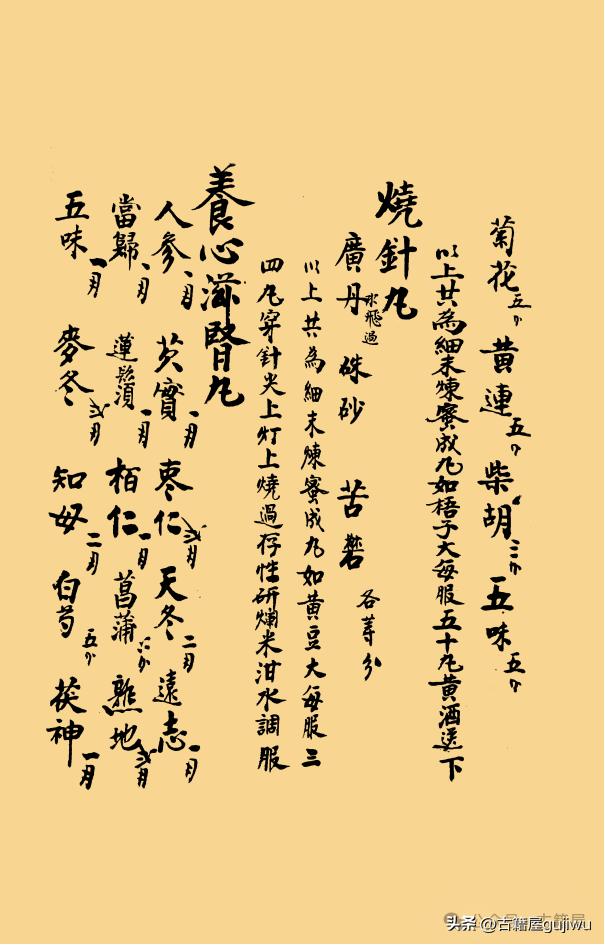 菊花五分 黄連五分 柴胡三分 五味五分
以上共為細末煉蜜成丸如梧子大每服五十丸黄酒送下
燒針丸
廣丹水飛過 硃砂 苦礬 各等分
以上共為細末煉蜜成丸如黄豆大每服三
四丸穿針尖上灯上燒過存性研爛米泔水調服
養心滋腎丸
人參一錢 芡實一錢 棗仁弍錢 天冬二錢 遠志一錢
當歸一錢 蓮鬚一錢 栢仁一錢 菖蒲 熟地弍錢
五味一錢 麥冬弍錢 知母二錢 白芍五分 茯神一錢
头条 @古籍屋gujiwu